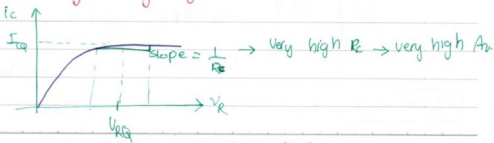 ic
ICQ
slope = 1/Rc → very high Rc → very high Av
VR
VRQ